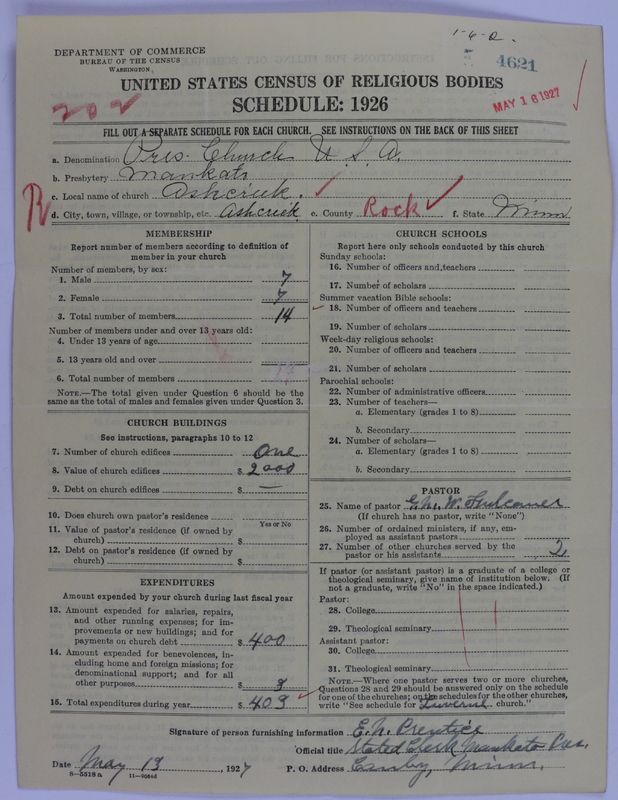 1-6-2.
DEPARTMENT OF COMMERCE
BUREAU OF THE CENSUS
WASHINGTON
4621
UNITED STATES CENSUS OF RELIGIOUS BODIES
MAY 16 1927
202
SCHEDULE: 1926
FILL OUT A SEPARATE SCHEDULE FOR EACH CHURCH. SEE INSTRUCTIONS ON THE BACK OF THIS SHEET
a. Denomination Pres. Church U. S. A.
b. Presbytery Mankato
c. Local name of church Ashcreek.
R
d. City, town, village, or township, etc. Ashcreek e. County Rock f. State Minn
MEMBERSHIP
Report number of members according to definition of
member in your church
Number of members, by sex:
1. Male 7
2. Female 7
3. Total number of members 14
Number of members under and over 13 years old:
4. Under 13 years of age
5. 13 years old and over
6. Total number of members 14
NOTE.—The total given under Question 6 should be the
same as the total of males and females given under Question 3.
CHURCH BUILDINGS
See instructions, paragraphs 10 to 12
7. Number of church edifices One
8. Value of church edifices $ 2000
9. Debt on church edifices $ —
10. Does church own pastor's residence
Yes or No
11. Value of pastor's residence (if owned by
church) $
12. Debt on pastor's residence (if owned by
church) $
EXPENDITURES
Amount expended by your church during last fiscal year
13. Amount expended for salaries, repairs,
and other running expenses; for im-
provements or new buildings; and for
payments on church debt $ 400
14. Amount expended for benevolences, in-
cluding home and foreign missions; for
denominational support; and for all
other purposes $ 9
15. Total expenditures during year $ 409
CHURCH SCHOOLS
Report here only schools conducted by this church
Sunday schools:
16. Number of officers and teachers
17. Number of scholars
Summer vacation Bible schools:
18. Number of officers and teachers
19. Number of scholars
Week-day religious schools:
20. Number of officers and teachers
21. Number of scholars
Parochial schools:
22. Number of administrative officers
23. Number of teachers—
a. Elementary (grades 1 to 8)
b. Secondary
24. Number of scholars—
a. Elementary (grades 1 to 8)
b. Secondary
PASTOR
25. Name of pastor W.
(If church has no pastor, write "None")
26. Number of ordained ministers, if any, em-
ployed as assistant pastors
27. Number of other churches served by the
pastor or his assistants 2
If pastor (or assistant pastor) is a graduate of a college or
theological seminary, give name of institution below. (If
not a graduate, write "No" in the space indicated.)
Pastor:
28. College
29. Theological seminary
Assistant pastor:
30. College
31. Theological seminary
NOTE.—Where one pastor serves two or more churches,
Questions 28 and 29 should be answered only on the schedule
for one of the churches; on the schedules for the other churches,
write "See schedule for Luverne church."
Signature of person furnishing information E. N. Prentice
Official title Stated Clerk Mankato Pres.
Date May 13, 1927 P. O. Address Canby, Minn.
8-5518 a 11-9064d